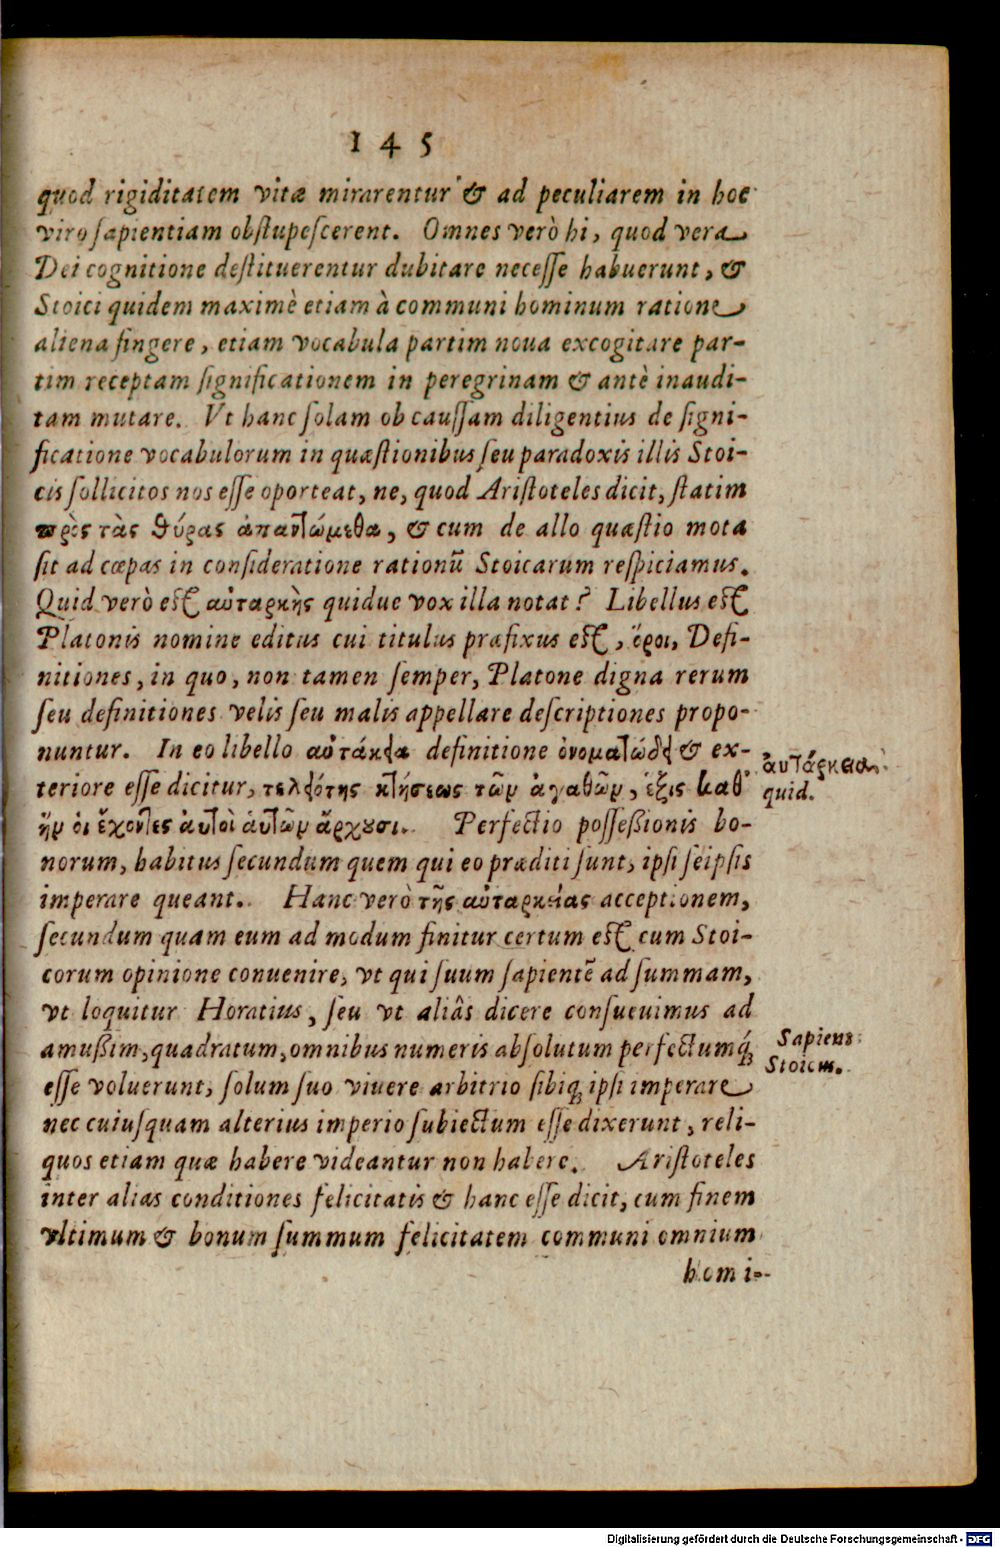 145
quod rigiditatem vitæ mirarentur & ad peculiarem in hoc
viro sapientiam obstupescerent. Omnes verò hi, quod vera
Dei cognitione destituerentur dubitare necesse habuerunt, &
Stoici quidem maximè etiam à communi hominum ratione
aliena fingere, etiam vocabula partim noua excogitare par-
tim receptam significationem in peregrinam & antè inaudi-
tam mutare. Vt hanc solam ob caussam diligentius de signi-
ficatione vocabulorum in quæstionibus seu paradoxis illis Stoi-
cis sollicitos nos esse oporteat, ne, quod Aristoteles dicit, statim
πρὸς τὰς θύρας ἀπαντώμεθα, & cum de allo quæstio mota
sit ad cæpas in consideratione rationũ Stoicarum respiciamus.
Quid verò est αὐταρκὴς quidue vox illa notat? Libellus est
Platonis nomine editus cui titulus præfixus est, ὅροι, Defi-
nitiones, in quo, non tamen semper, Platone digna rerum
seu definitiones velis seu malis appellare descriptiones propo-
nuntur. In eo libello αὐτάκεια definitione ὀνοματώδει & ex-
teriore esse dicitur, τελειότης κτήσεως τῶν ἀγαθῶν, ἕξις καθ'
ἣν οἱ ἔχοντες αὐτοὶ αὑτῶν ἄρχουσι. Perfectio posseßionis bo-
norum, habitus secundum quem qui eo præditi sunt, ipsi seipsis
imperare queant. Hanc verò τῆς αὐταρκείας acceptionem,
secundum quam eum ad modum finitur certum est cum Stoi-
corum opinione conuenire, vt qui suum sapientẽ ad summam,
vt loquitur Horatius, seu vt aliâs dicere consueuimus ad
amußim, quadratum, omnibus numeris absolutum perfectumq́;
esse voluerunt, solum suo viuere arbitrio sibiq; ipsi imperare
nec cuiusquam alterius imperio subiectum esse dixerunt, reli-
quos etiam quæ habere videantur non habere. Aristoteles
inter alias conditiones felicitatis & hanc esse dicit, cum finem
vltimum & bonum summum felicitatem communi omnium
homi-
αὐτάρκεια
quid.
Sapiens
Stoicus.
Digitalisierung gefördert durch die Deutsche Forschungsgemeinschaft - DFG